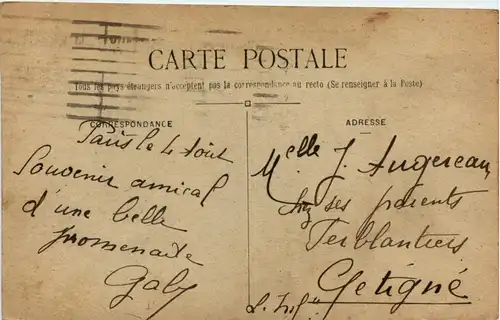 CARTE POSTALE
Tous les pays étrangers n'acceptent pas la correspondance au recto (Se renseigner à la Poste)
CORRESPONDANCE
Paris le 4 Aout
Souvenir amical
d'une belle
promenade
Gaby
ADRESSE
Melle J. Augereau
chez ses parents
Ferblantiers
Getigné
L. Infre